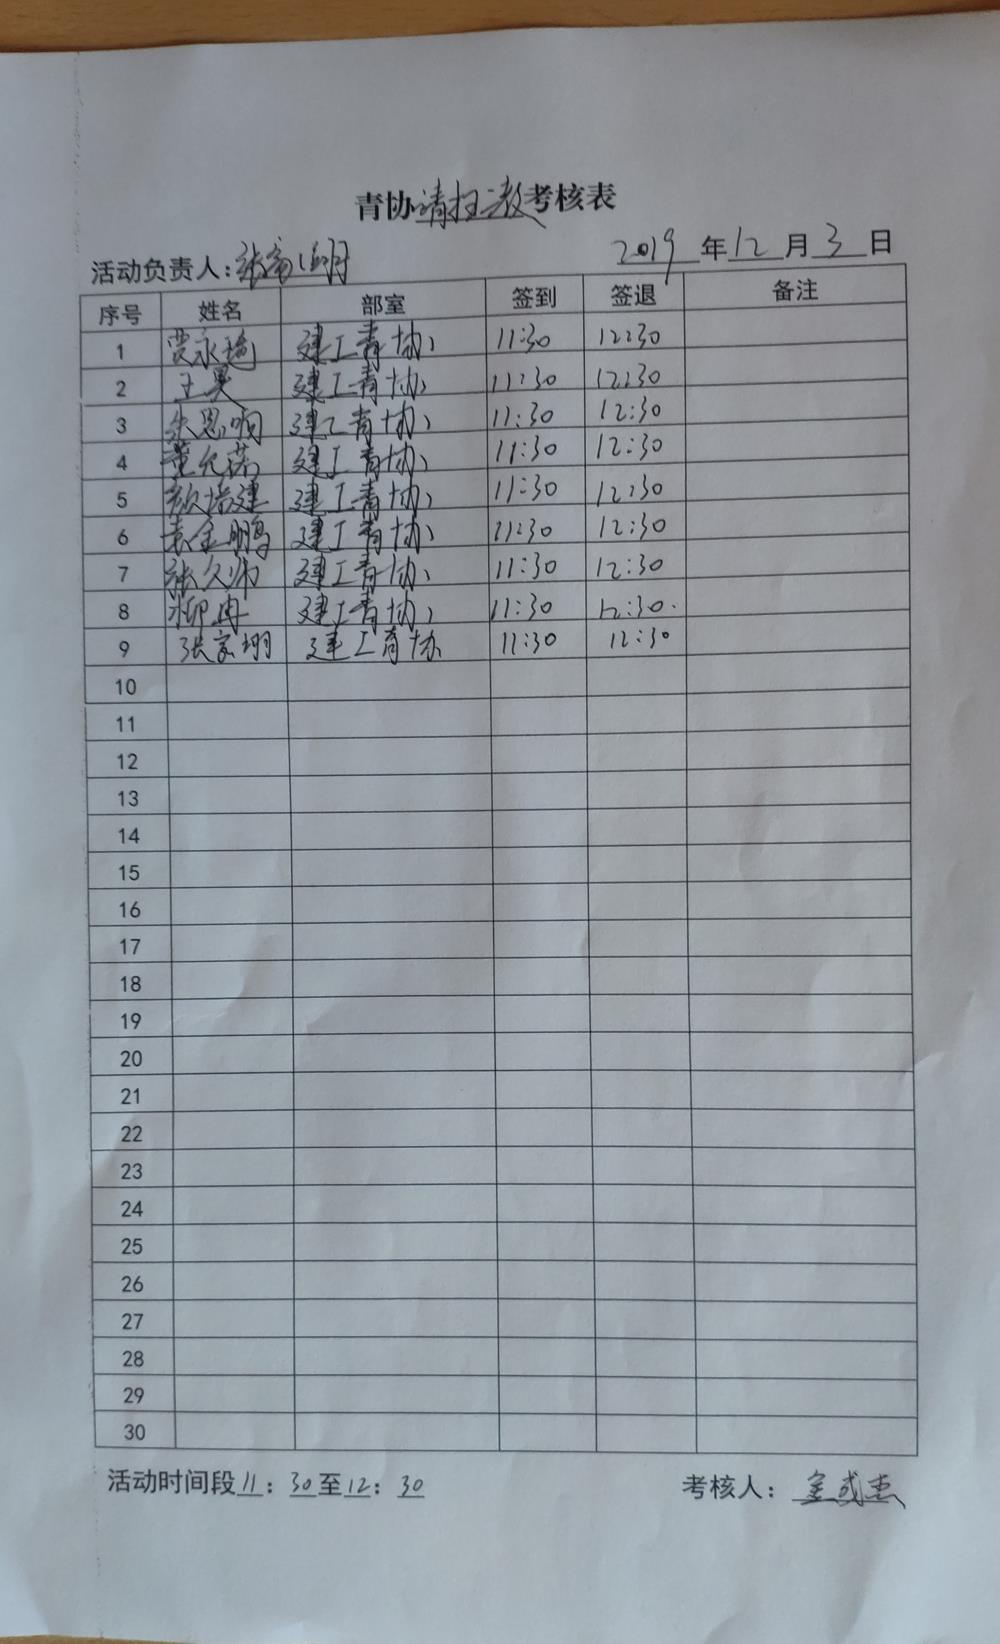 青协清扫三教考核表
2019年12月3日
活动负责人:张家珝
序号 姓名 部室 签到 签退 备注
1 贾永瑞 建工青协 11:30 12:30
2 王昊 建工青协 11:30 12:30
3 朱恩顺 建工青协 11:30 12:30
4 董允诺 建工青协 11:30 12:30
5 建工青协 11:30 12:30
6 袁金鹏 建工青协 11:30 12:30
7 张久帅 建工青协 11:30 12:30
8 柳冉 建工青协 11:30 12:30.
9 张家珝 建工青协 11:30 12:30
10
11
12
13
14
15
16
17
18
19
20
21
22
23
24
25
26
27
28
29
30
活动时间段11:30至12:30 考核人: